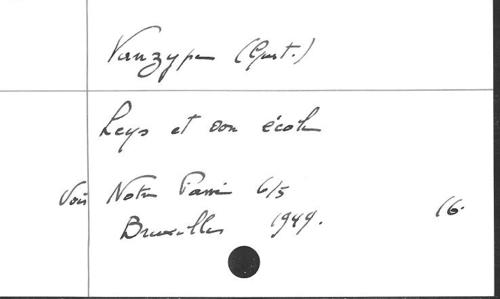 Vanzype (Gust.)
Leys et son école
Voir Notre Passé 6/5
Bruxelles 1949. 16.